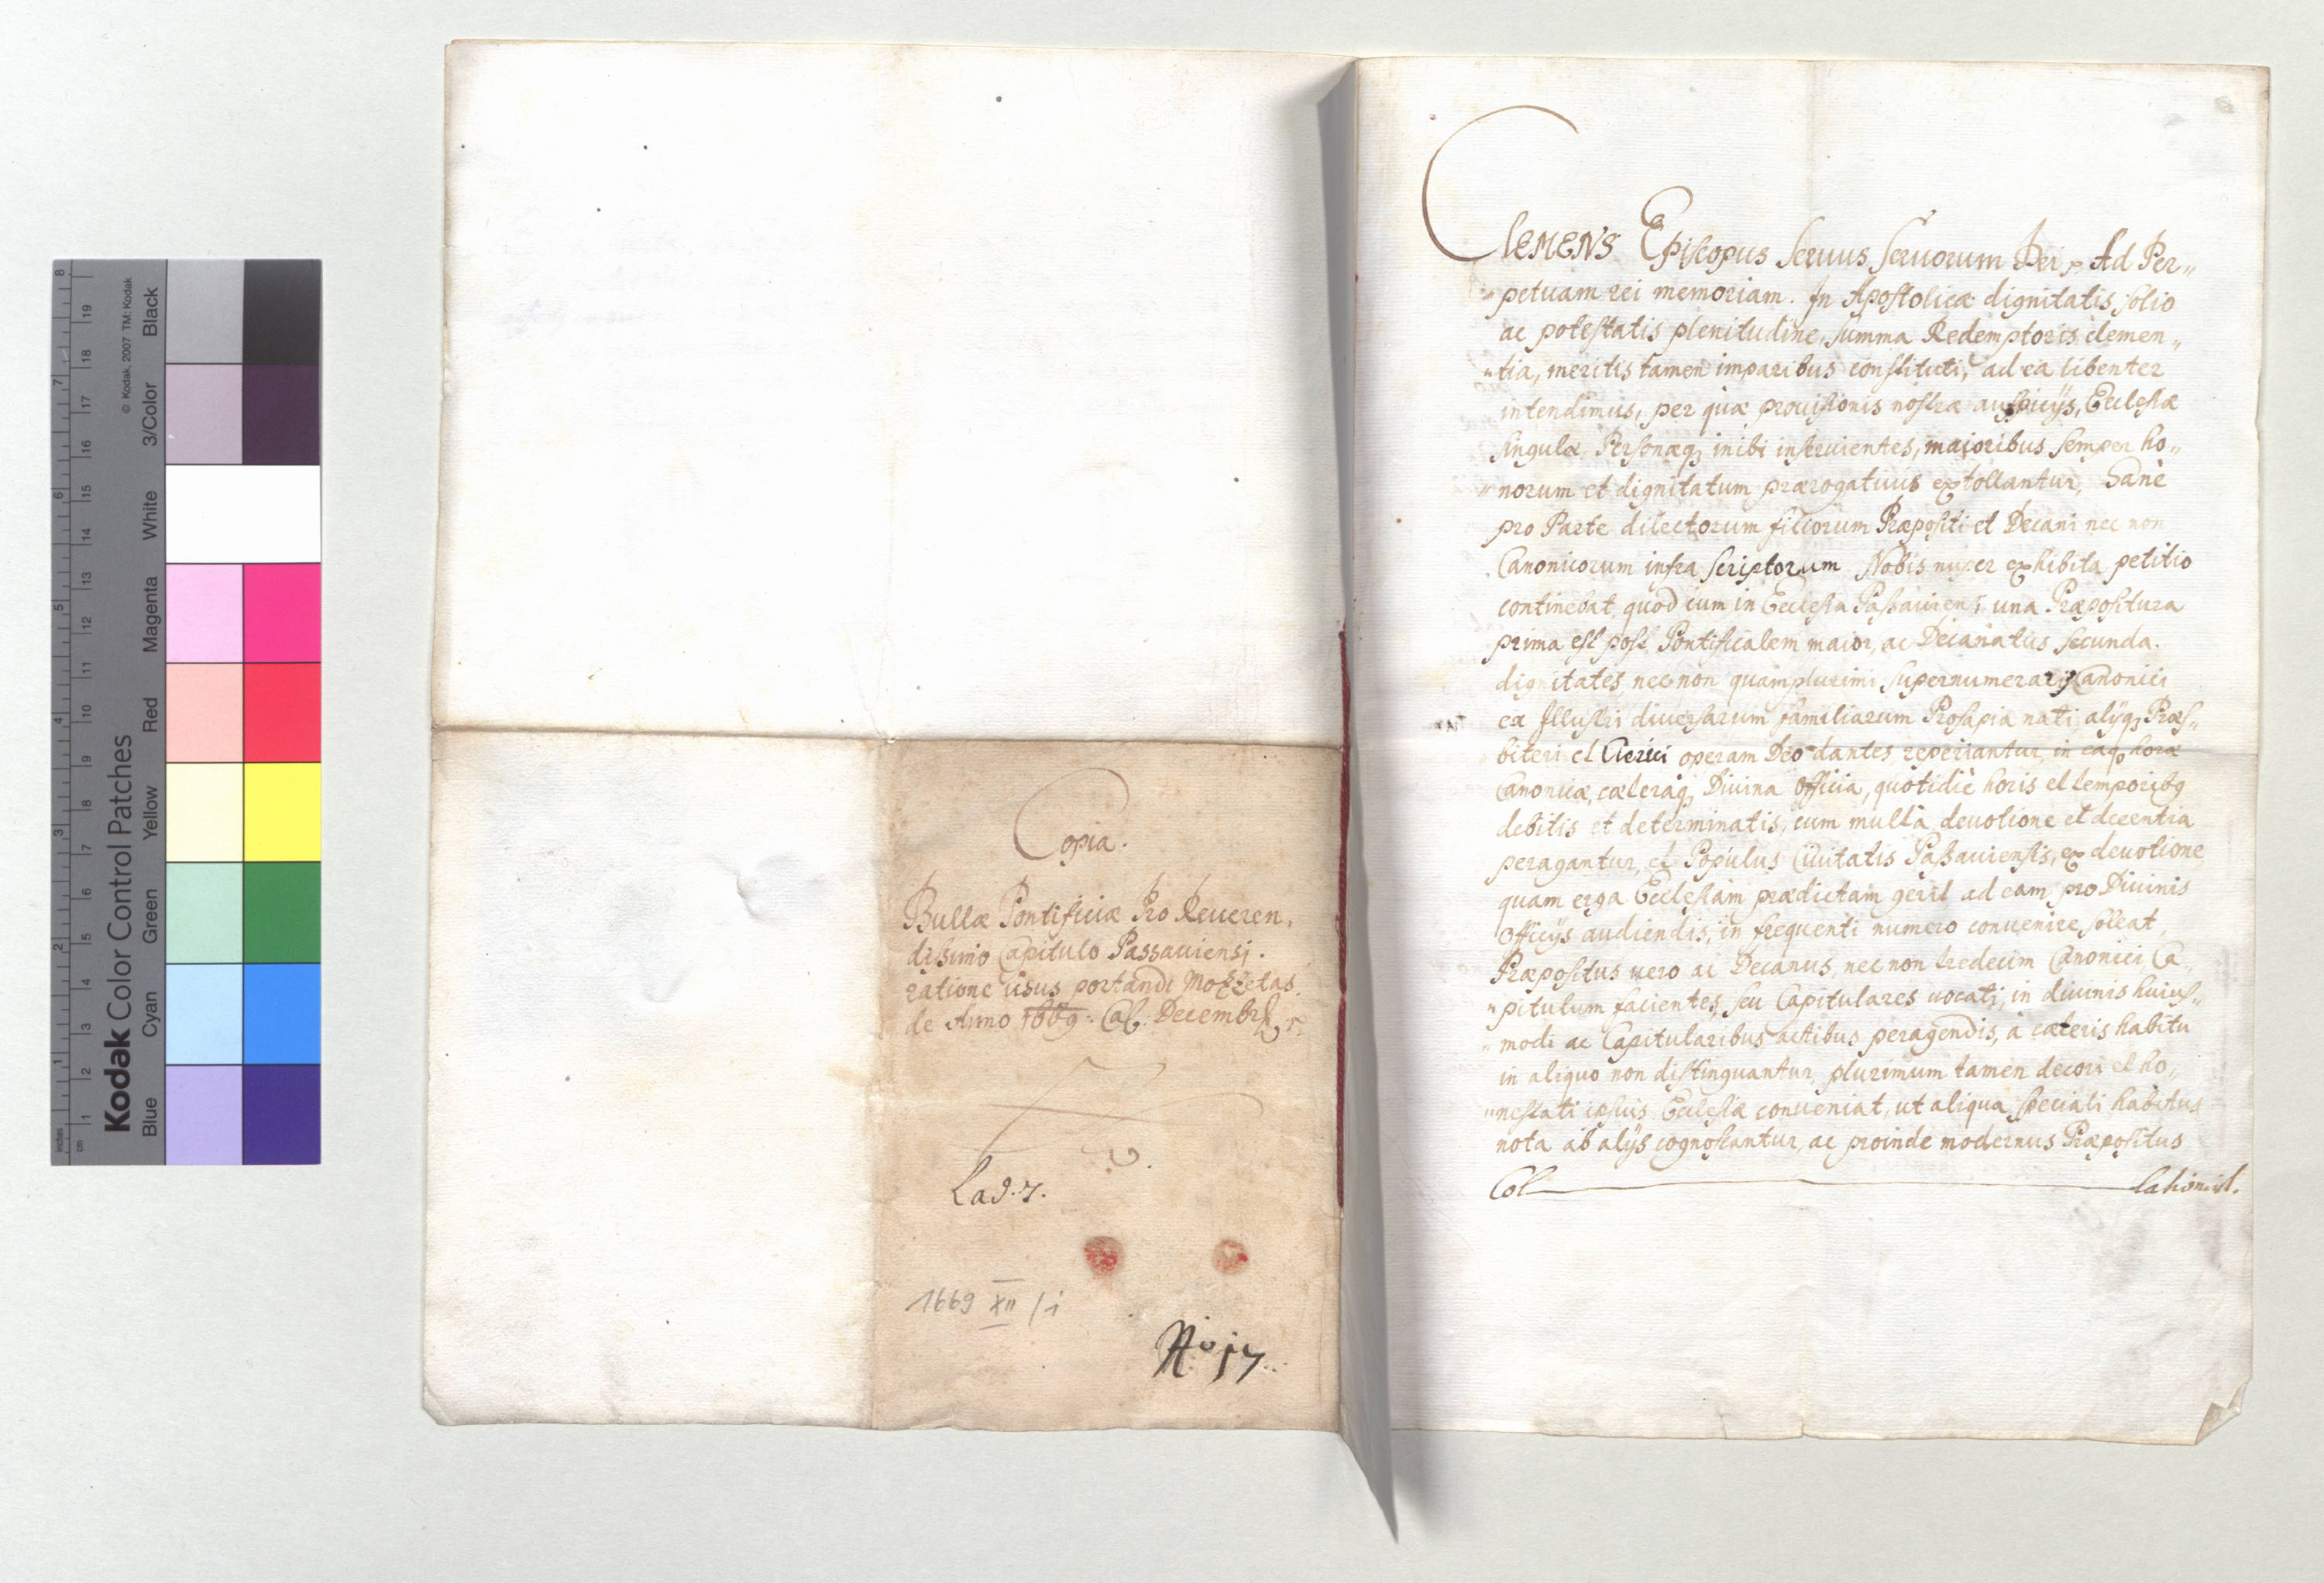 Copia.
Bullæ Pontificiæ Pro Reueren,
dißimo Capitulo Passauiensi.
ratione usus portandi Mozzetas.
de Anno 1669. Cal. Decembr
Lad. 7.
1669 XII / 1
No 17.
CLEMENS Episcopus Seruus Seruorum Dei Ad Per„
„petuam rei memoriam. In Apostolicæ dignitatis solio
ac potestatis plenitudine, summa Redemptoris clemen„
„tia, meritis tamen imparibus constituti, ad ea libenter
intendimus, per quæ prouisionis nostræ auspicijs, Ecclesiæ
singulæ Personæq; inibi inseruientes, maioribus semper ho„
„norum et dignitatum prærogatiuis extollantur, Sanè
pro Parte dilectorum filiorum Præpositi et Decani nec non
Canonicorum infra scriptorum Nobis nuper exhibita petitio
continebat, quod cum in Ecclesia Paßauiensi una Præpositura
prima est post Pontificalem maior, ac Decanatus secunda.
dignitates, nec non quamplurimi supernumerarij Canonici
ex Illustri diuersarum familiarum Prosapia nati, alijq; Præs„
biteri et Clerici operam Deo dantes reperiantur, in eaq; horæ
Canonicæ, cæteraq; Diuina Officia, quotidiè horis et temporibq
debitis et determinatis, cum multà deuotione et decentia
peragantur, et Populus Ciuitatis Paßauiensis, ex deuotione
quam erga Ecclesiam prædictam gerit ad eam pro Diuinis
Officijs audiendis, in frequenti numero conuenire soleat,
Præpositus uero ac Decanus, nec non tredecim Canonici Ca„
„pitulum facientes, seu Capitulares uocati, in diuinis huius„
„modi ac Capitularibus actibus peragendis, à cæteris habitu
in aliquo non distinguantur, plurimum tamen decori et ho„
„nestati ipsius Ecclesiæ conueniat, ut aliqua speciali habitus
nota ab alijs cognoscantur, ac proinde modernus Præpositus
Col